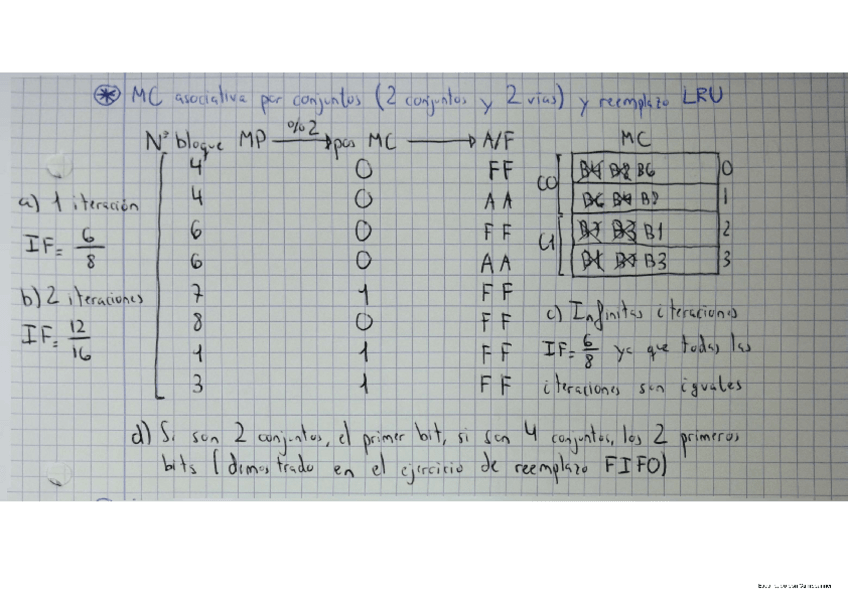 * MC asociativa por conjuntos (2 conjuntos y 2 vías) y reemplazo LRU
Nº bloque MP %2 pos MC A/F MC
4 0 FF
4 0 AA
6 0 FF
6 0 AA
7 1 FF
8 0 FF
1 1 FF
3 1 FF
a) 1 iteración
IF = 6/8
b) 2 iteraciones
IF = 12/16
C0
B4 B8 B6 0
B6 B4 B8 1
C1
B7 B3 B1 2
B1 B7 B3 3
c) Infinitas iteraciones
IF = 6/8 ya que todas las
iteraciones son iguales
d) Si son 2 conjuntos, el primer bit, si son 4 conjuntos, los 2 primeros
bits (demostrado en el ejercicio de reemplazo FIFO)